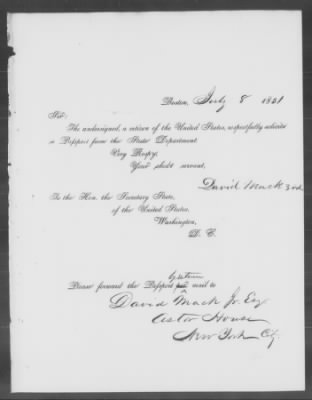 Boston, July 8 1851
Sir:
The undersigned, a citizen of the United States, respectfully solicits
a Passport from the State Department.
Very Respy,
Your obdt servant,
David Mack 3rd
To the Hon. the Secretary State,
of the United States,
Washington,
D. C.
by return
Please forward the Passport mail to
David Mack Jr. Esq
Astor House
New York City